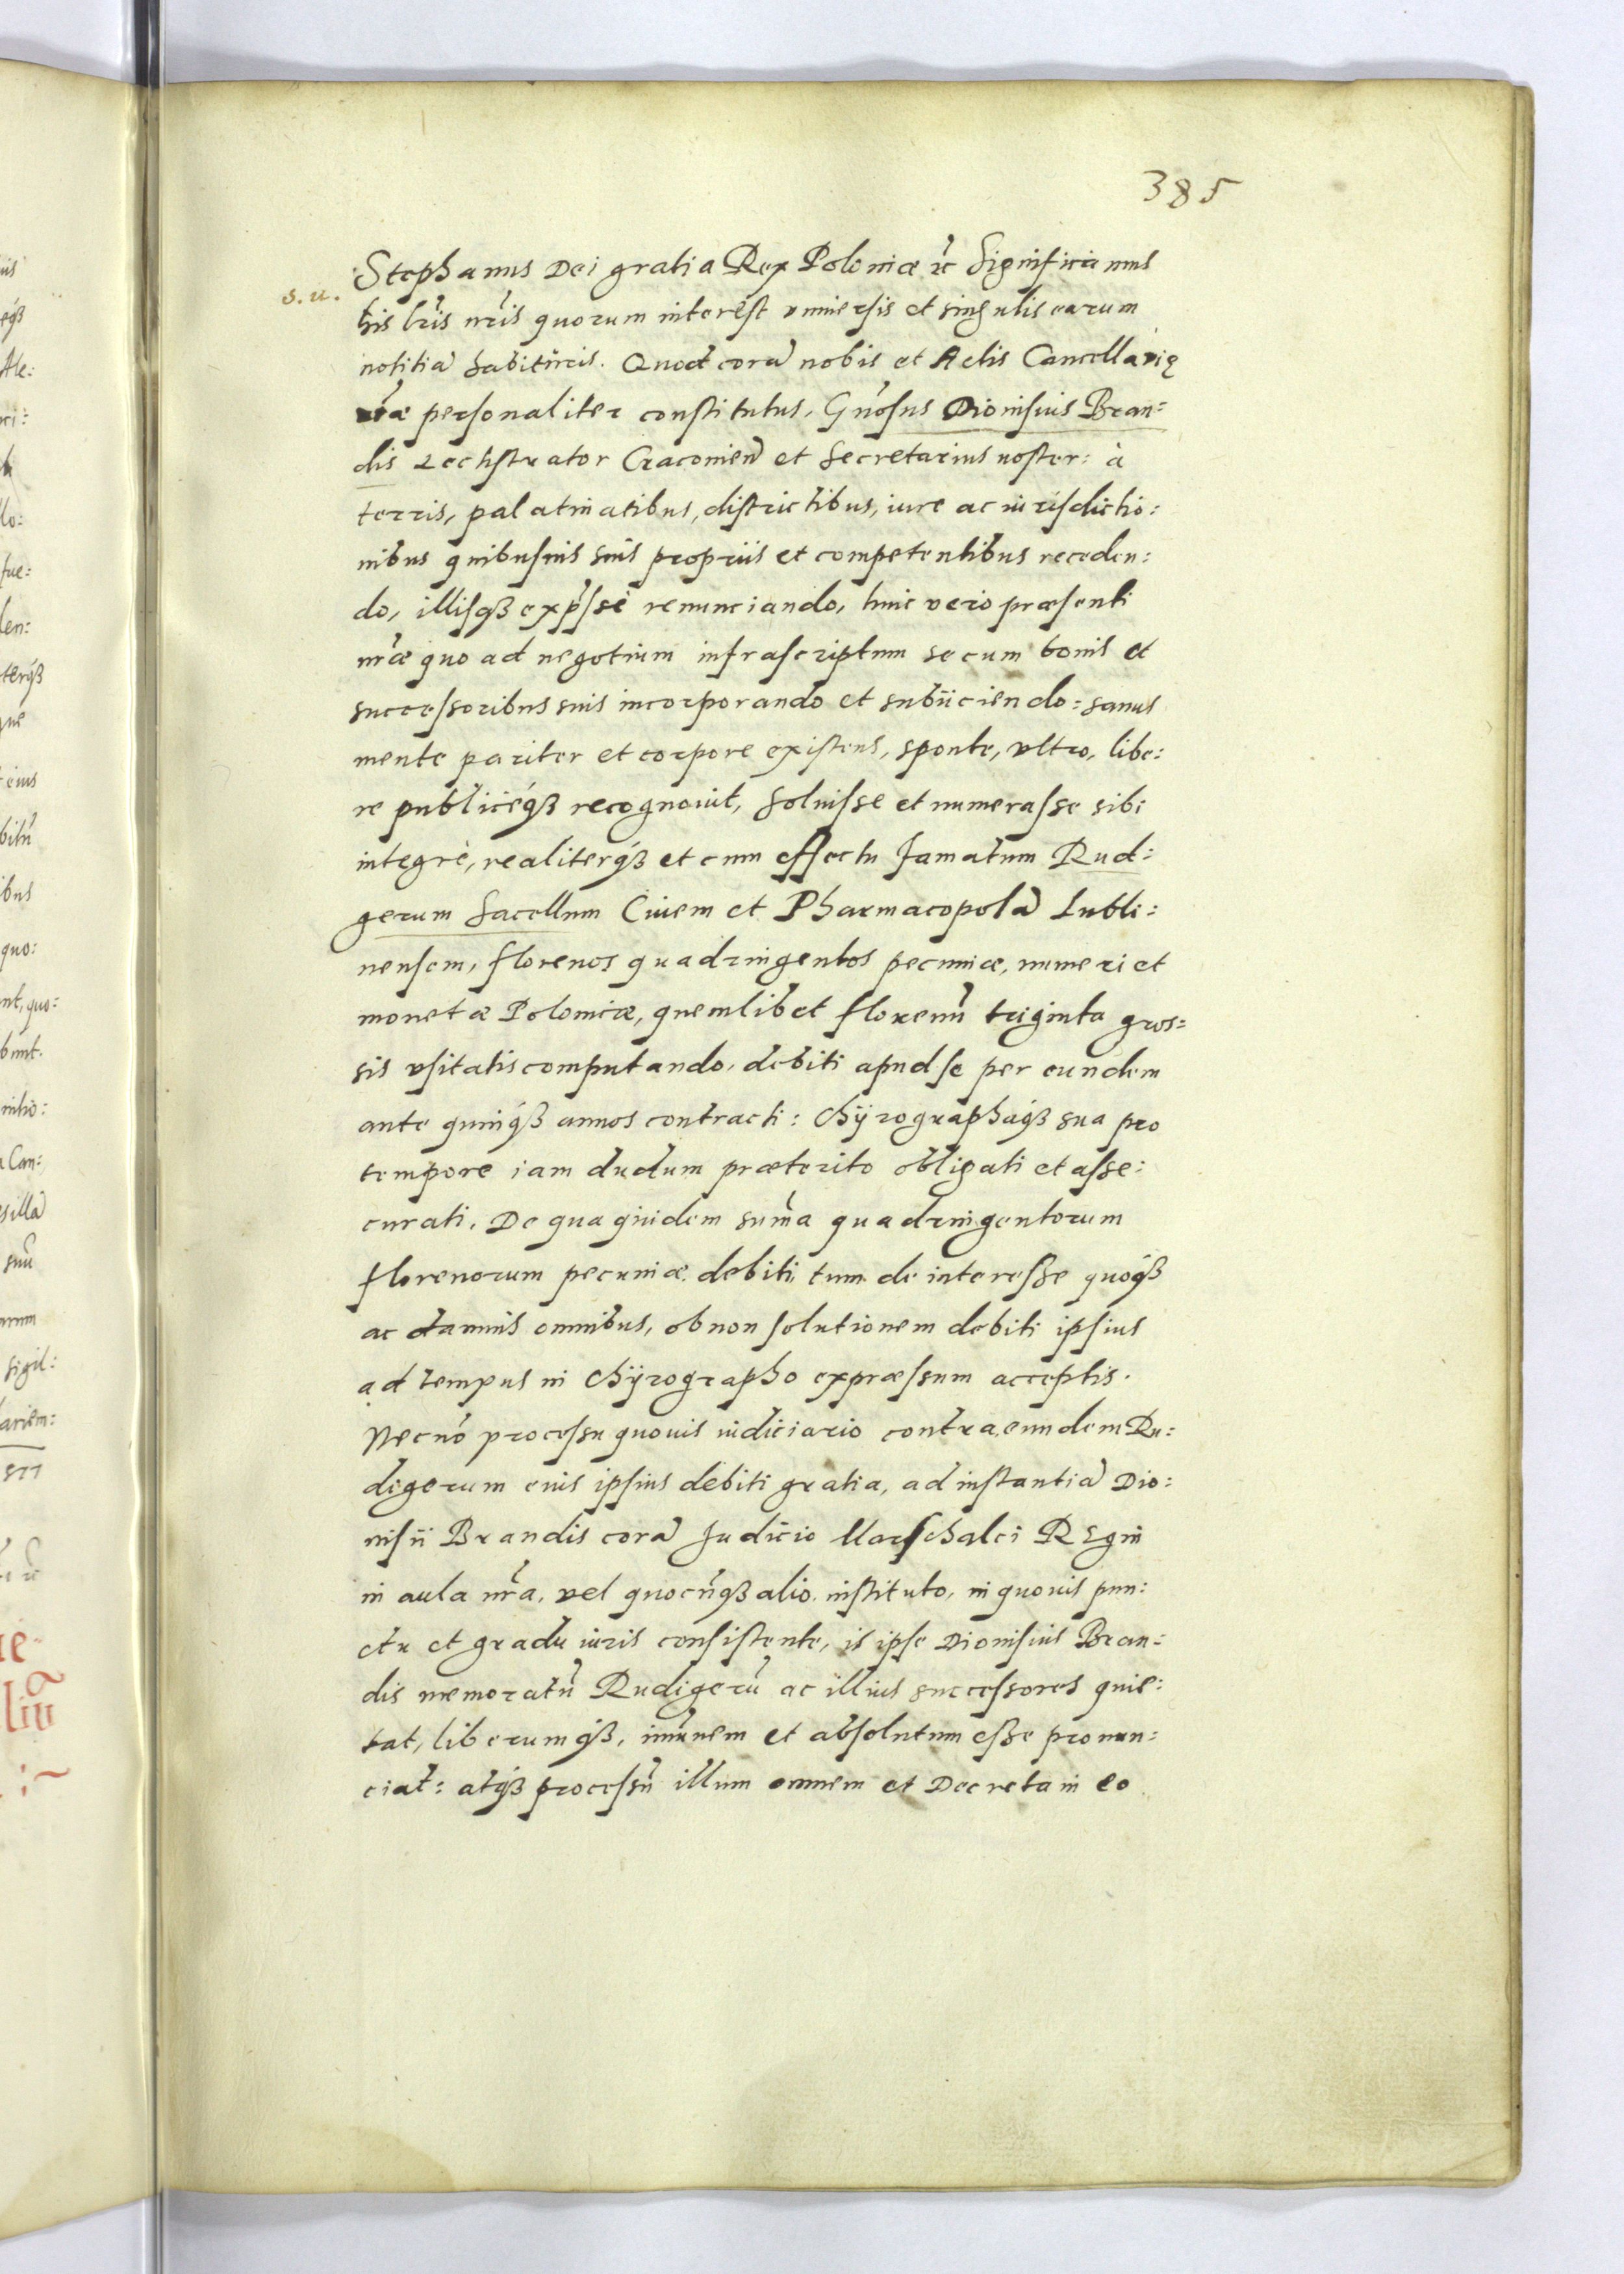 385
Stephanus Dei gratia Rex Poloniæ ꝛc̃ Significamus
s. u.
his lr̃is nr̃is quorum interest vniuersis et singulis earum
notitiã habituris. Quod corã nobis et Actis Cancellarię
nr̃æ personaliter constitutus, Gñosus Dionisius Bran=
dis Zechstrator Cracouieñ et Secretarius noster: à
terris, palatinatibus, districtibus, iure ac iurisdictio:
nibus quibusuis suis propriis et competentibus receden:
do, illisqꝫ exp̃ssè renunciando, huic vero præsenti
nr̃æ quo ad negotium infrascriptum se cum bonis et
successoribus suis incorporando et subiiciendo: sanus
mente pariter et corpore existens, sponte, vltro, libe:
re publicéqꝫ recognouit, Soluisse et numerasse sibi
integrè, realiterqꝫ et cum effectu famatum Rud:
gerum Sacellum Ciuem et Pharmacopolã Lubli:
nensem, florenos quadringentos pecuniæ, numeri et
monetæ Polonicæ, quemlibet florenũ triginta gros=
sis vsitatis computando, debiti apud se per eundem
ante quinqꝫ annos contracti: Chÿrographáqꝫ sua pro
tempore iam dudum præterito obligati et asse:
curati. De qua quidem sum̃a quadringentorum
florenorum pecuniæ debiti, tum de interesse quoqꝫ
ac damnis omnibus, ob non solutionem debiti ipsius
ad tempus in Chÿrographo expræssum acceptis.
Necnõ processu quouis iudiciario contra eundem Ru:
digerum eius ipsius debiti gratia, ad instantiã Dio:
nisii Brandis corã Judicio Marschalci Regni
in aula nr̃a, vel quocũqꝫ alio instituto, in quouis pun:
ctu et gradu iuris consistente, is ipse Dionisius Bran:
dis memoratũ Rudigerũ ac illius successores quie:
tat, liberumqꝫ, imũnem et absolutum esse pronun:
ciat: atqꝫ processũ illum omnem et Decreta in eo